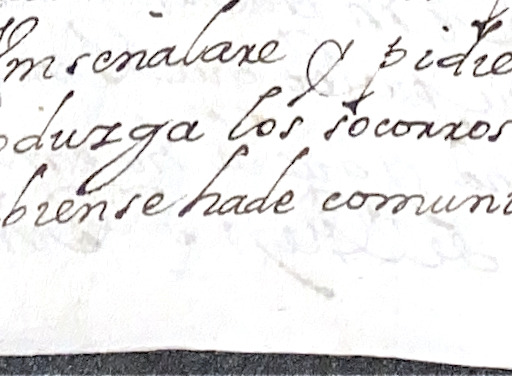 Vm señalare y pidie
oduzga los socorros
bien se ha de comuni